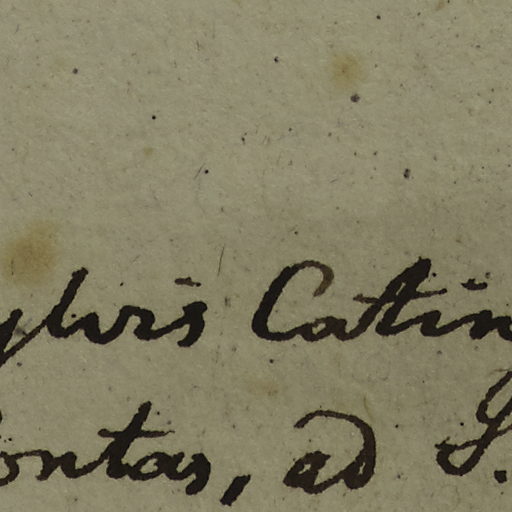 ylvis Catin
ontas, ad S.